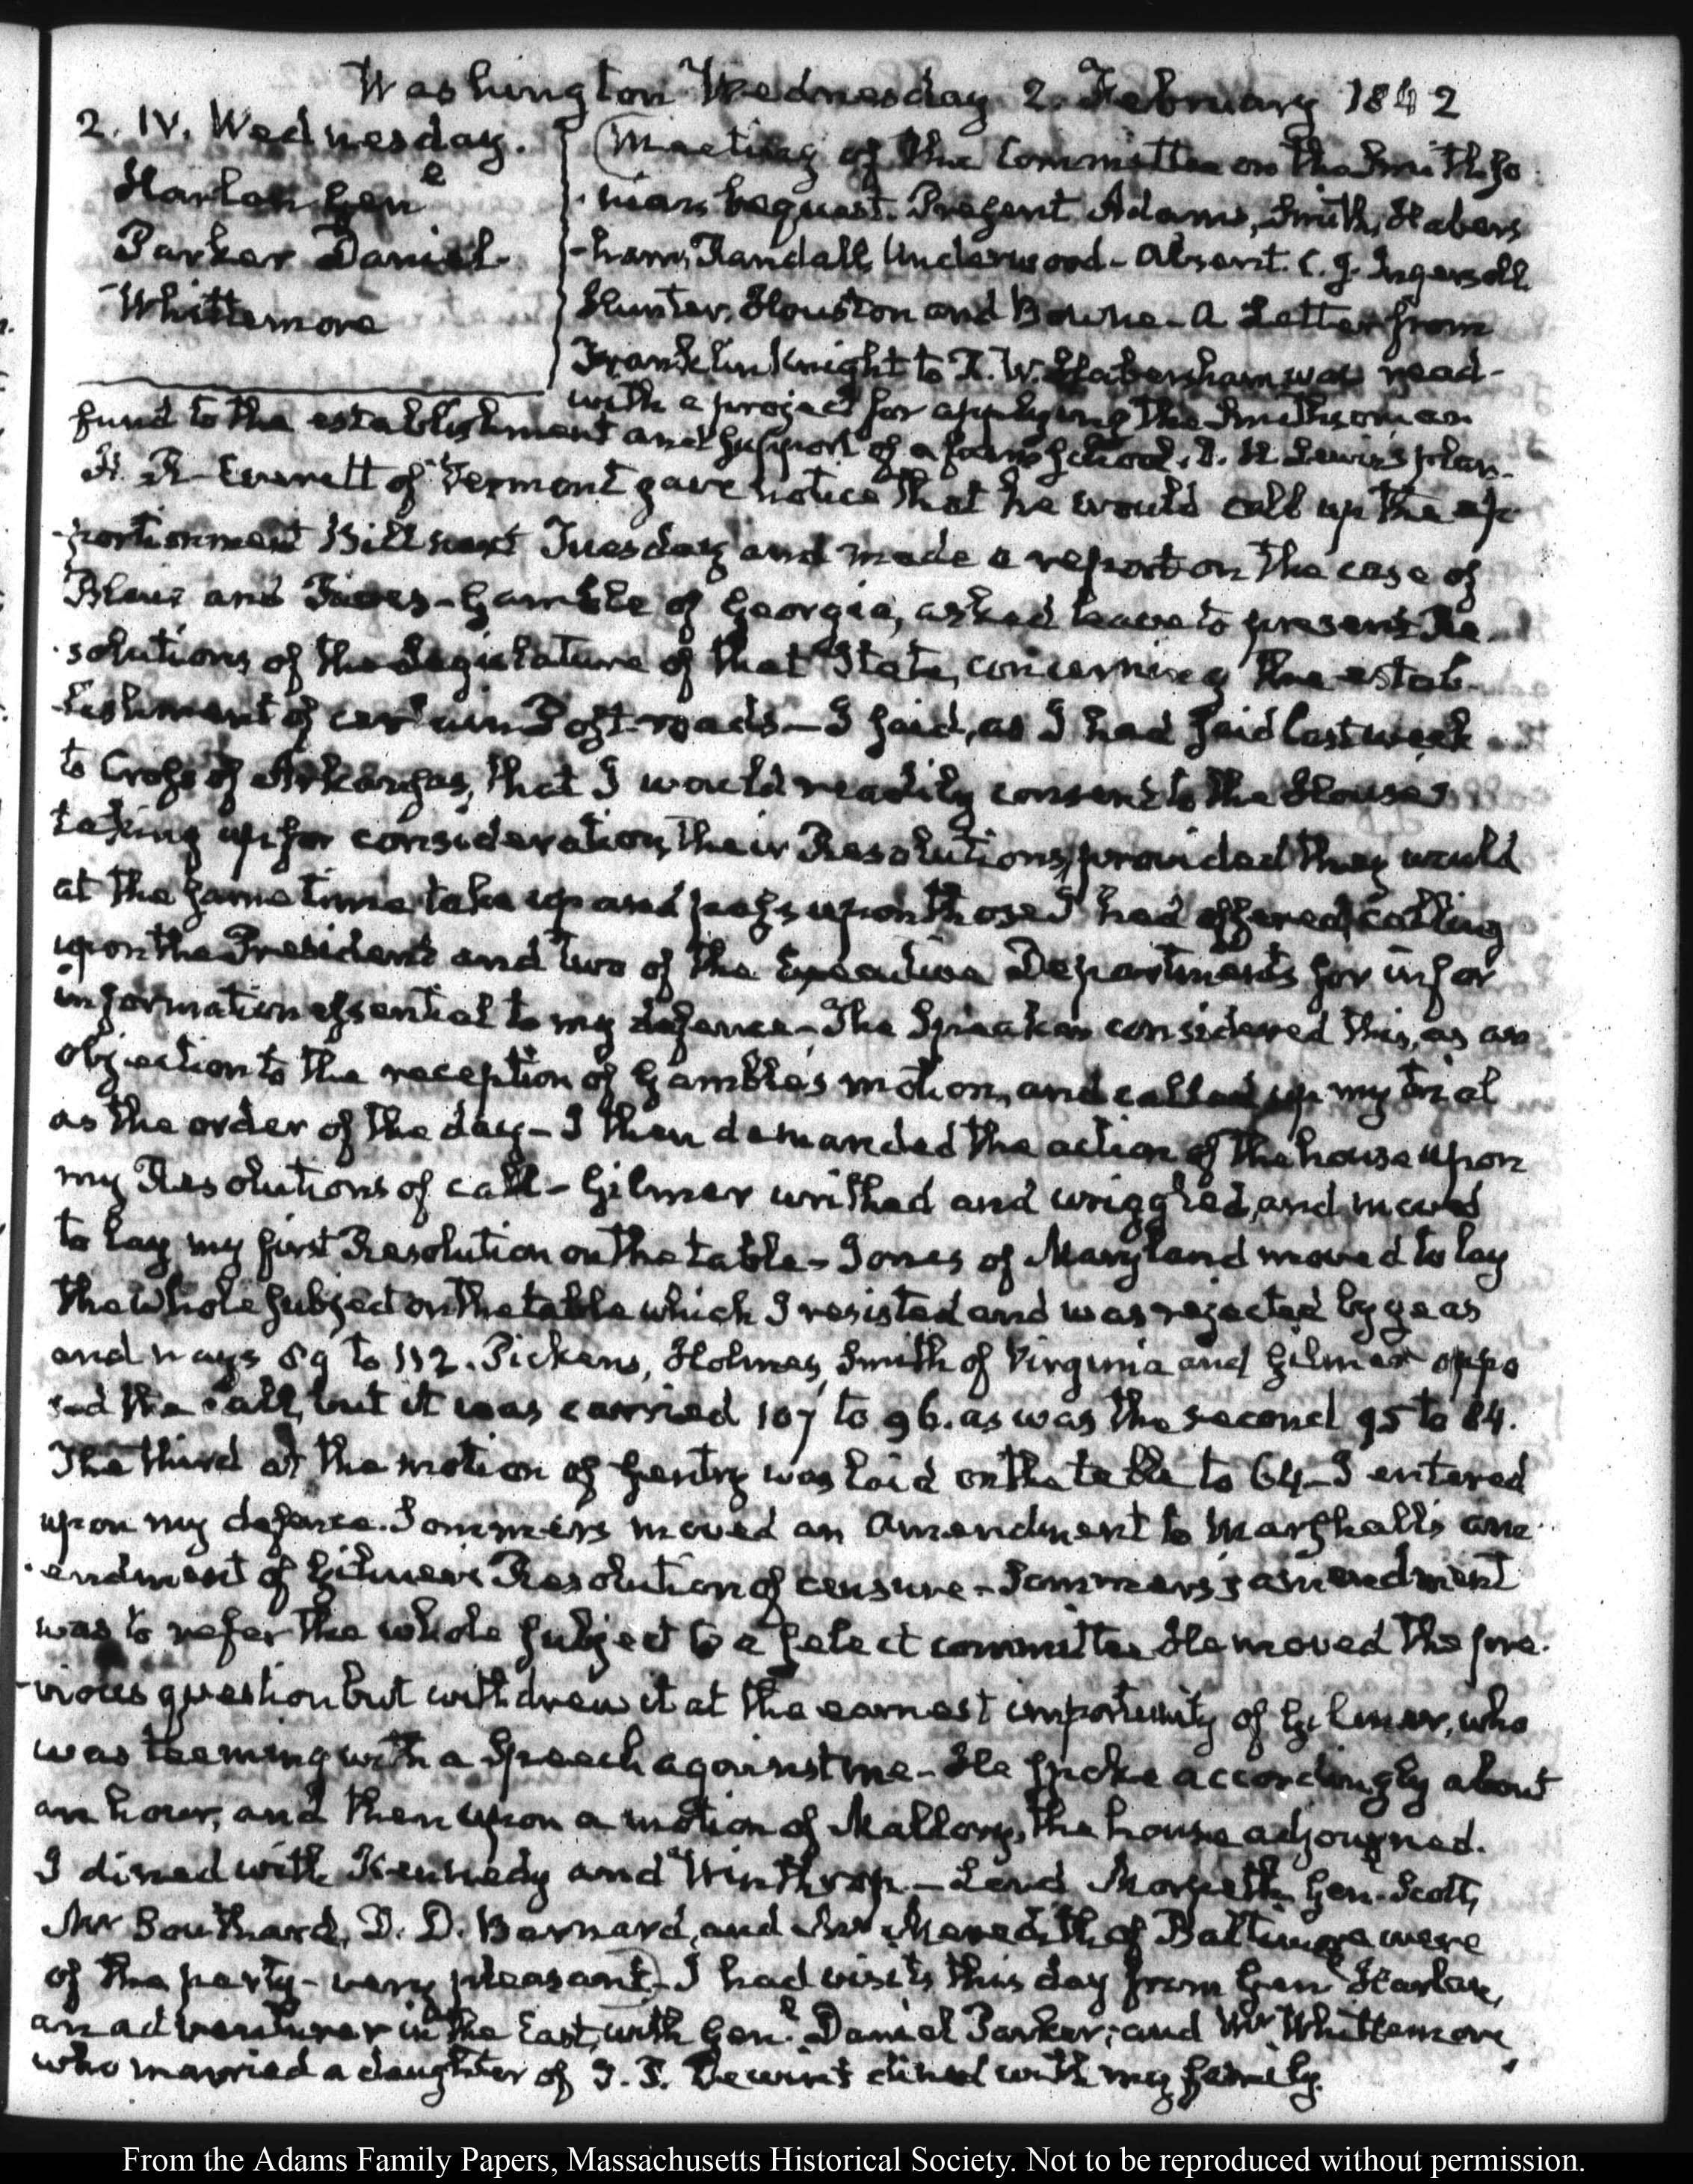 Washington Wednesday 2. February 1842
2. IV. Wednesday.
Harlan Gen.e
Parker Daniel
Whittemore
Meeting of the Committee on the Smithso
-nian bequest. Present Adams, Smith, Habers
-ham, Randall, Underwood - Absent. C. J. Ingersoll
Hunter, Houston and Bowne - A Letter from
Franklin Knight to R. W. Habersham was read -
with a project for applying the Smithsonian
fund to the establishment and support of a farm school. D. H. Lewis's plan -
H. R - Everett of Vermont gave notice that he would call up the ap
-portionment Bill next Tuesday and made a report on the case of
Blair and Rives - Gamble of Georgia, asked leave to present Re
-solutions of the Legislature of that State, concerning the estab-
-lishment of certain Post-roads - I said, as I had said last week
to Cross of Arkansas, that I would readily consent to the House's
taking up for consideration their Resolutions, provided they would
at the same time take up and pass upon those I had offered, calling
upon the President and two of the Executive Departments for infor
information essential to my defence - The Speaker considered this, as an
objection to the reception of Gamble's motion, and called up my trial
as the order of the day - I then demanded the action of the house upon
my Resolutions of call - Gilmer writhed and wriggled, and moved
to lay my first Resolution on the table - Jones of Maryland moved to lay
the whole subject on the table which I resisted and was rejected by yeas
and nays 89 to 112. Pickens, Holmes, Smith of Virginia and Gilmer oppo
sed the call, but it was carried 107 to 96. as was the second 95 to 84.
The third at the motion of Gentry was laid on the table to 64 - I entered
upon my defence. Sommers moved an amendment to Marshall's am
-endment of Gilmer's Resolution of censure - Sommers's amendment
was to refer the whole subject to a select committee He moved the pre-
-vious question but withdrew it at the earnest importunity of Gilmer, who
was teeming with a Speech against me - He spoke accordingly about
an hour, and then upon a motion of Mallory, the house adjourned.
I dined with Kennedy and Winthrop - Lord Morpeth Gen. Scott,
Mr Southard, D. D. Barnard, and Mr Meredith of Baltimore were
of the party - very pleasant - I had visits this day from Gen.l Harlan,
an adventurer in the East, with Gen.l Daniel Parker; and Mr Whittemore
who married a daughter of J. P. Dewint dined with my family.
From the Adams Family Papers, Massachusetts Historical Society. Not to be reproduced without permission.